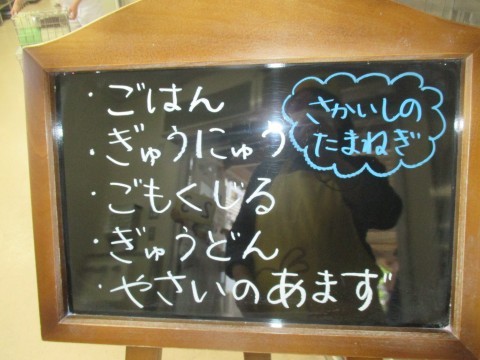 ・ごはん
・ぎゅうにゅう
・ごもくじる
・ぎゅうどん
・やさいのあまず
さかいしの
たまねぎ